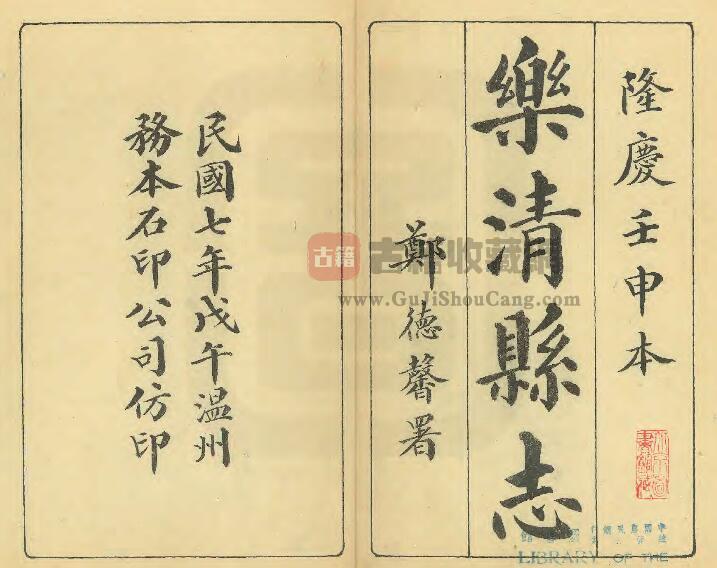 隆慶壬申本
樂清縣志
鄭德馨署
民國七年戊午温州
務本石印公司仿印
古籍
古籍收藏
www.GuJiShouCang.com
LIBRARY OF THE